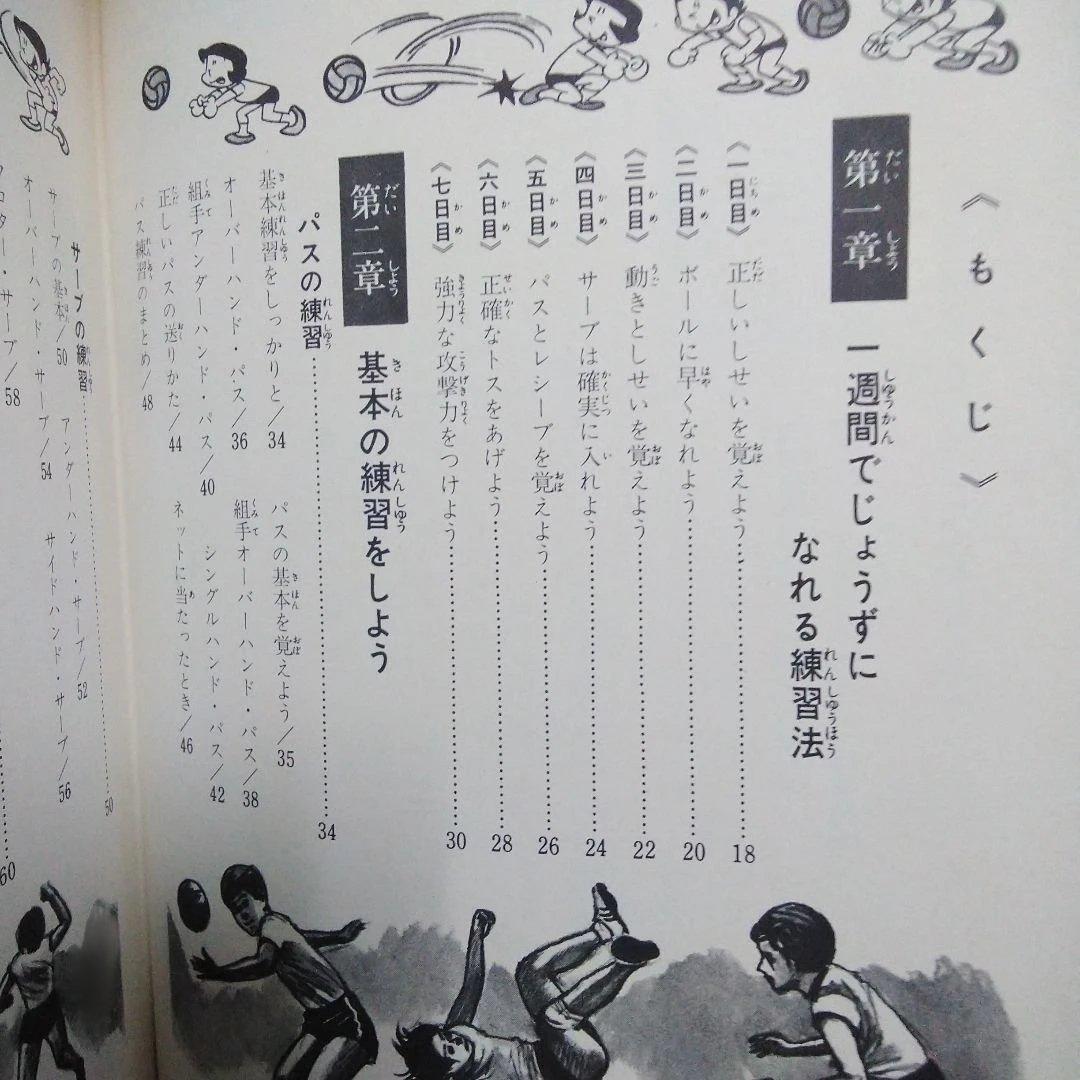 《もくじ》
第一章
一週間でじょうずに
なれる練習法
《一日目》 正しいしせいを覚えよう……18
《二日目》 ボールに早くなれよう……20
《三日目》 動きとしせいを覚えよう……22
《四日目》 サーブは確実に入れよう……24
《五日目》 パスとレシーブを覚えよう……26
《六日目》 正確なトスをあげよう……28
《七日目》 強力な攻撃力をつけよう……30
第二章 基本の練習をしよう
パスの練習……34
基本練習をしっかりと/34 パスの基本を覚えよう/35
オーバーハンド・パス/36 組手オーバーハンド・パス/38
組手アンダーハンド・パス/40 シングルハンド・パス/42
正しいパスの送りかた/44 ネットに当たったとき/46
パス練習のまとめ/48
サーブの練習……50
サーブの基本/50 アンダーハンド・サーブ/52
オーバーハンド・サーブ/54 サイドハンド・サーブ/56
・サーブ/58
60